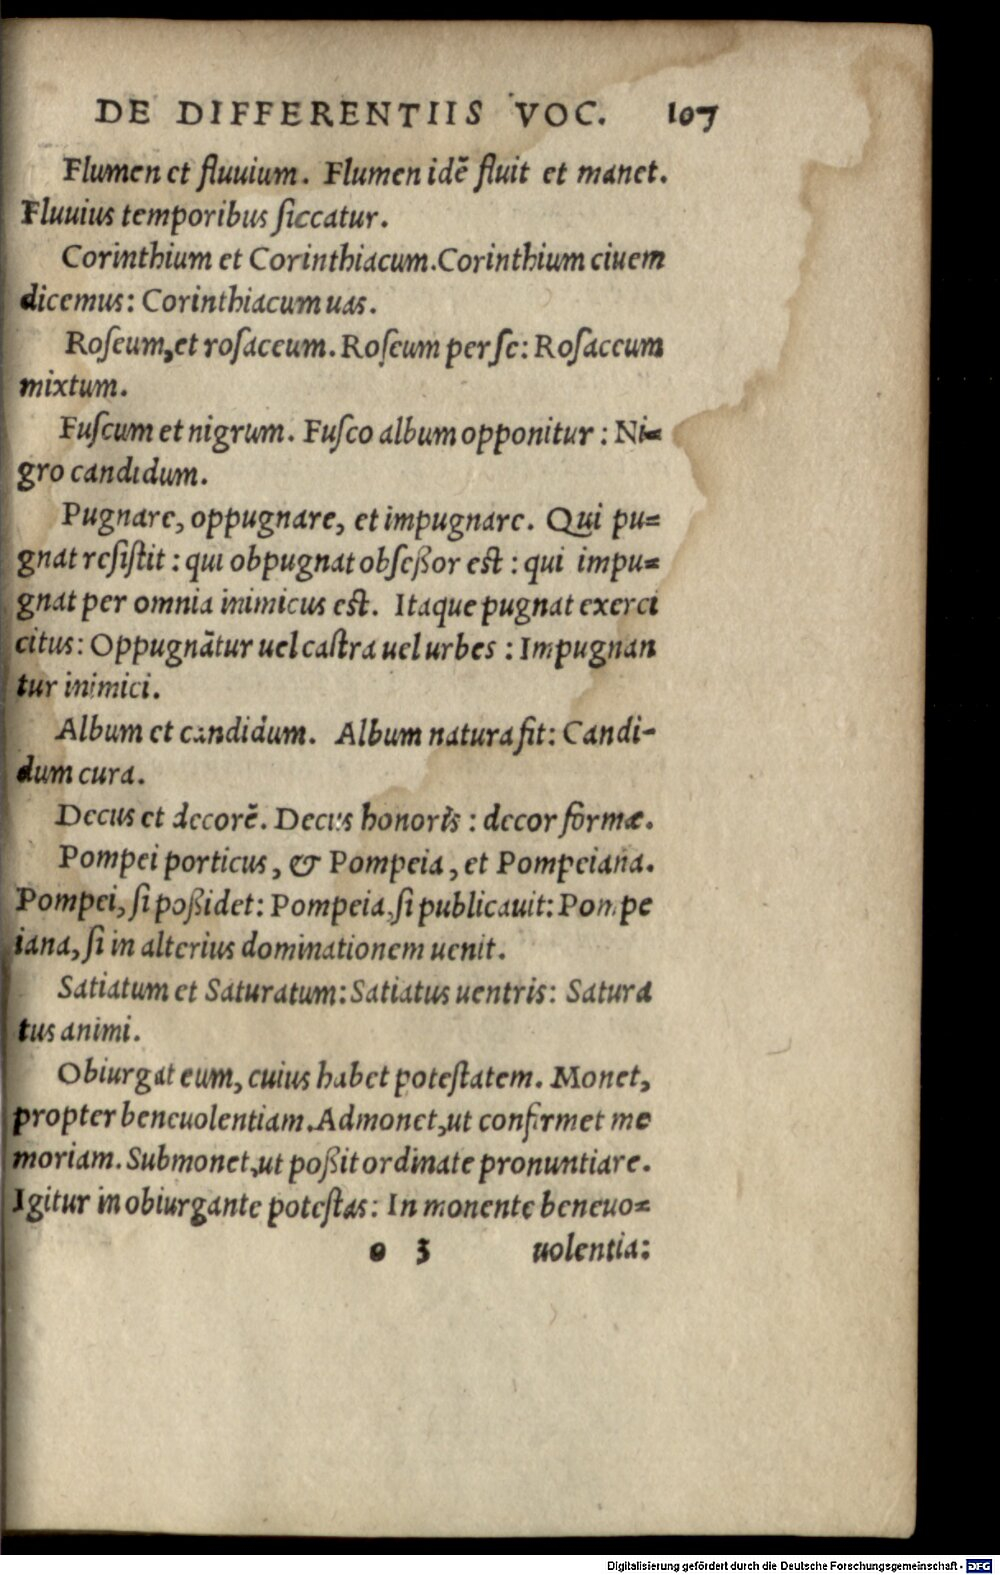 DE DIFFERENTIIS VOC. 107
Flumen et fluuium. Flumen idē fluit et manet.
Fluuius temporibus ſiccatur.
Corinthium et Corinthiacum. Corinthium ciuem
dicemus: Corinthiacum uas.
Roſeum, et roſaceum. Roſeum per ſe: Roſaceum
mixtum.
Fuſcum et nigrum. Fuſco album opponitur: Ni=
gro candidum.
Pugnare, oppugnare, et impugnare. Qui pu=
gnat reſiſtit: qui obpugnat obſeßor eſt: qui impu=
gnat per omnia inimicus eſt. Itaque pugnat exerci
citus: Oppugnātur uel caſtra uel urbes: Impugnan
tur inimici.
Album et candidum. Album natura fit: Candi-
dum cura.
Decus et decorē. Decus honoris: decor formæ.
Pompei porticus, & Pompeia, et Pompeiana.
Pompei, ſi poßidet: Pompeia, ſi publicauit: Pompe
iana, ſi in alterius dominationem uenit.
Satiatum et Saturatum: Satiatus uentris: Satura
tus animi.
Obiurgat eum, cuius habet poteſtatem. Monet,
propter beneuolentiam. Admonet, ut confirmet me
moriam. Submonet, ut poßit ordinate pronuntiare.
Igitur in obiurgante poteſtas: In monente beneuo=
o 3 uolentia:
Digitalisierung gefördert durch die Deutsche Forschungsgemeinschaft - DFG